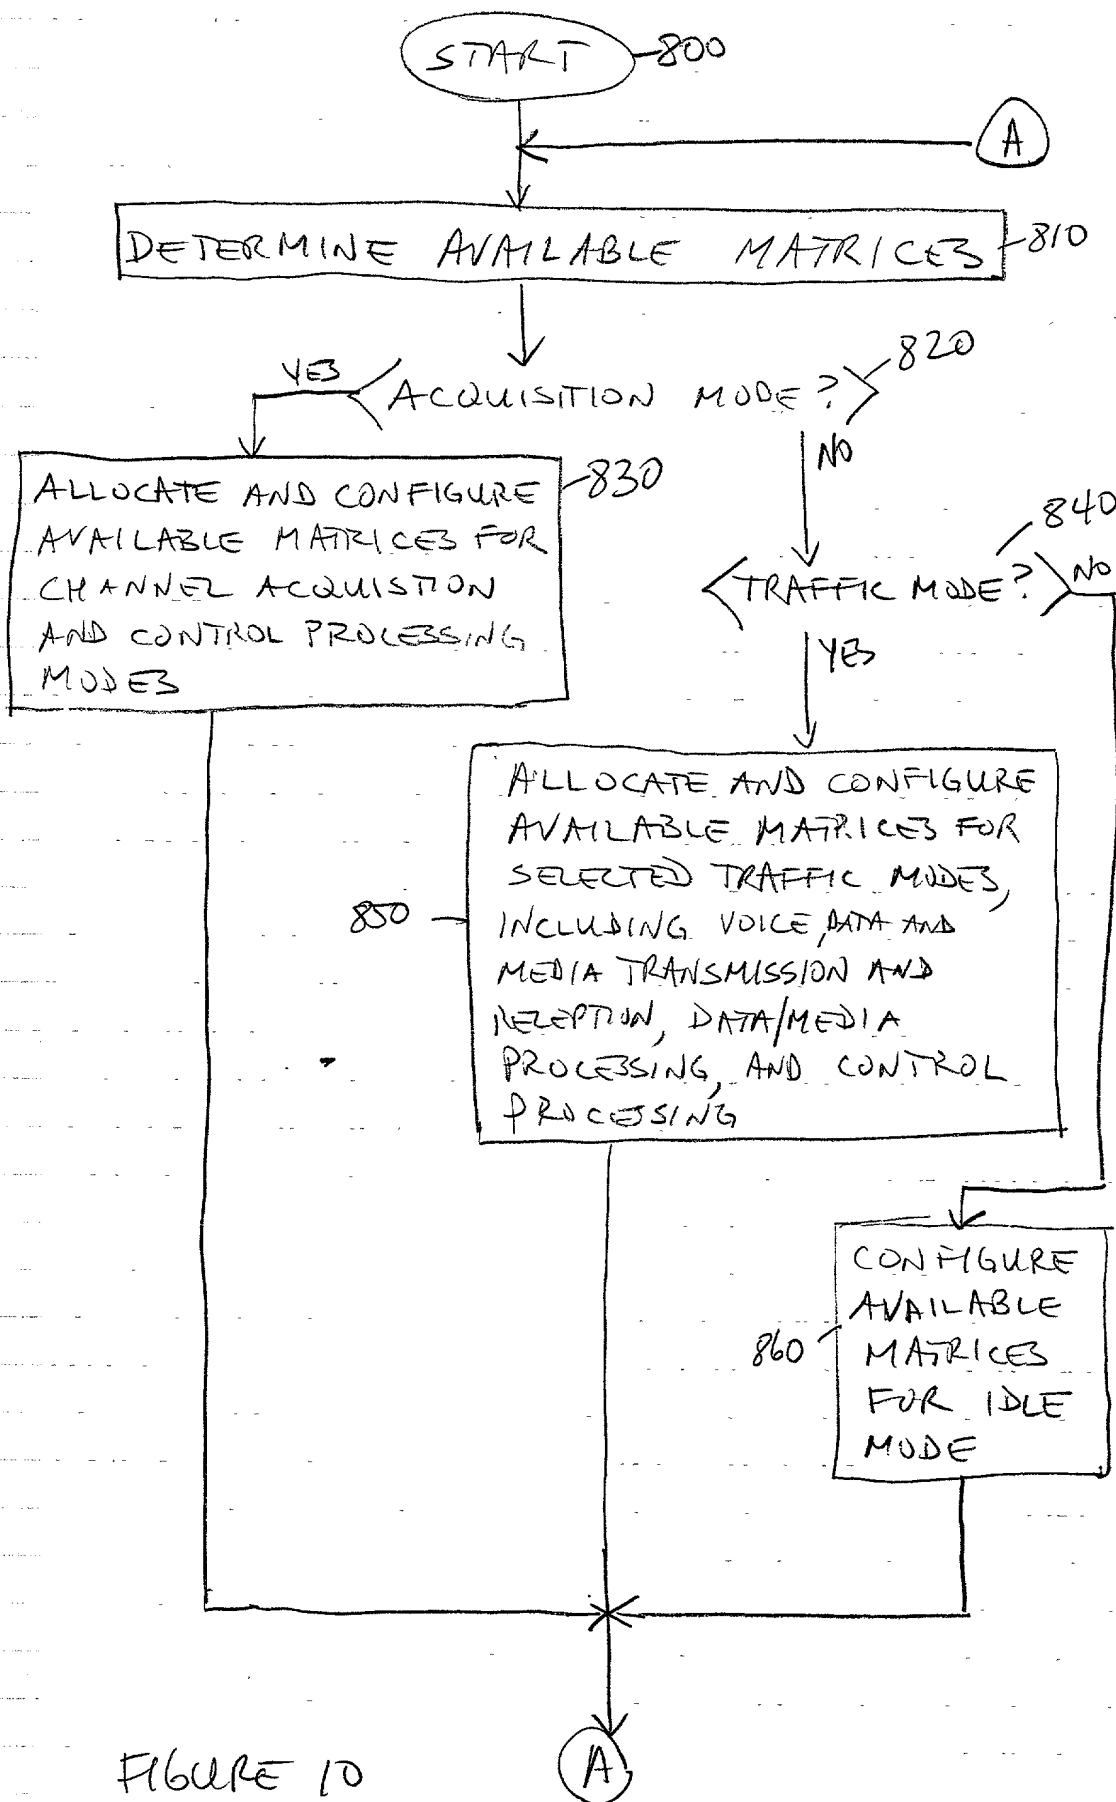 START
800
A
DETERMINE AVAILABLE MATRICES
810
820
YES
ACQUISITION MODE?
NO
830
ALLOCATE AND CONFIGURE
AVAILABLE MATRICES FOR
CHANNEL ACQUISTION
AND CONTROL PROCESSING
MODES
840
TRAFFIC MODE?
NO
YES
ALLOCATE AND CONFIGURE
AVAILABLE MATRICES FOR
SELECTED TRAFFIC MODES,
850
INCLUDING VOICE, DATA AND
MEDIA TRANSMISSION AND
RECEPTION, DATA/MEDIA
PROCESSING, AND CONTROL
PROCESSING
CONFIGURE
AVAILABLE
860
MATRICES
FOR IDLE
MODE
FIGURE 10
A